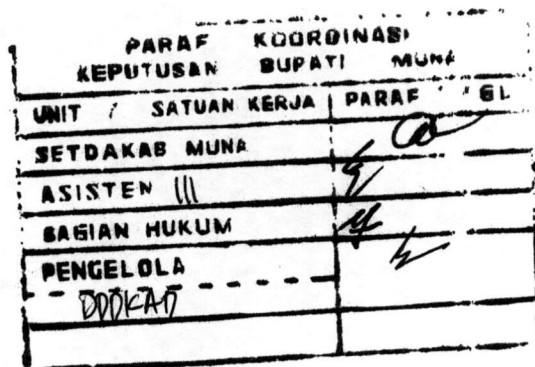 PARAF KOORDINASI
KEPUTUSAN BUPATI MUNA
UNIT / SATUAN KERJA PARAF / GL
SETDAKAB MUNA
ASISTEN III
BAGIAN HUKUM
PENGELOLA
DPPKAD